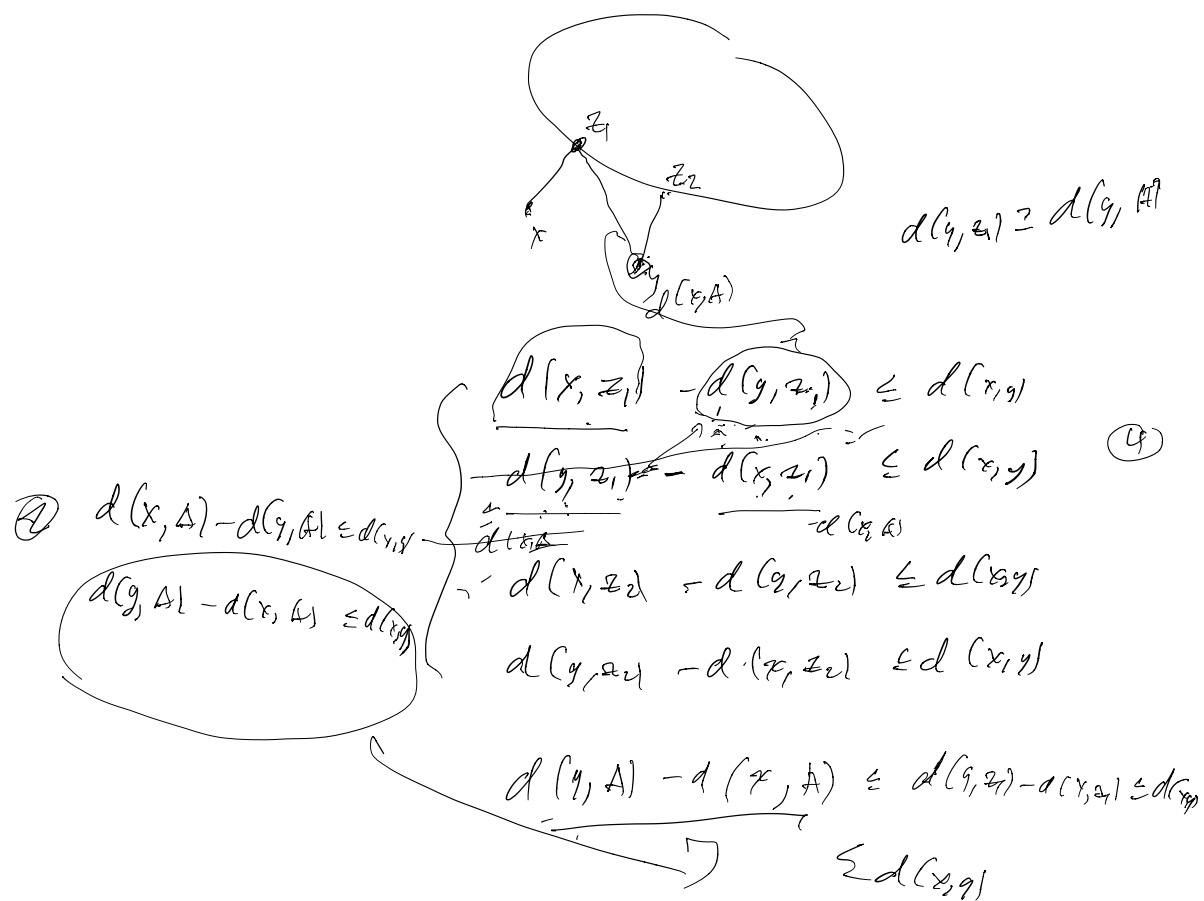 z₁
z₂
x
y
d(y, z₁) ≥ d(y, A)
d(x, A)
d(x, z₁) - d(y, z₁) ≤ d(x, y)
④
d(y, z₁) - d(x, z₁) ≤ d(x, y)
② d(x, A) - d(y, A) ≤ d(x, y)
d(x, A
- d(x, A)
d(x, z₂) - d(y, z₂) ≤ d(x, y)
d(y, A) - d(x, A) ≤ d(x, y)
d(y, z₂) - d(x, z₂) ≤ d(x, y)
d(y, A) - d(x, A) ≤ d(y, z₁) - d(x, z₁) ≤ d(x, y)
≤ d(x, y)